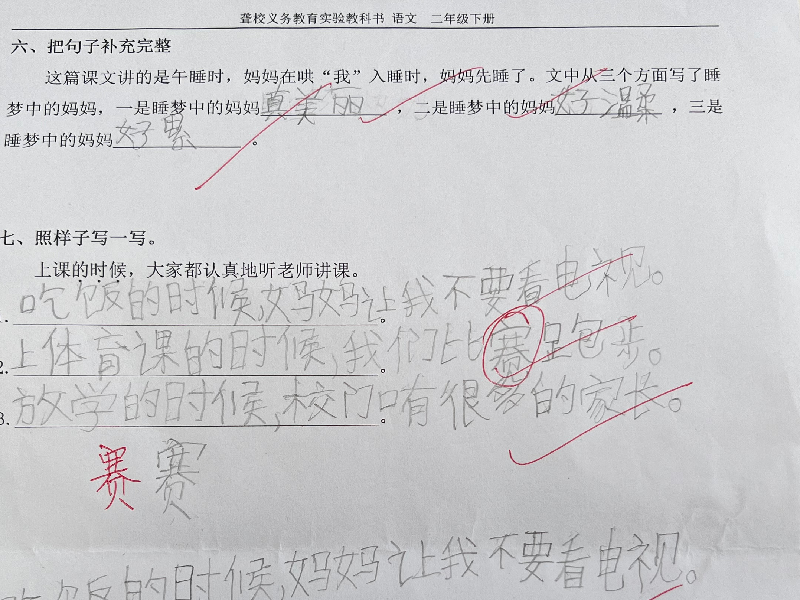 聋校义务教育实验教科书 语文 二年级下册
六、把句子补充完整
这篇课文讲的是午睡时，妈妈在哄“我”入睡时，妈妈先睡了。文中从三个方面写了睡
梦中的妈妈，一是睡梦中的妈妈真美丽，二是睡梦中的妈妈好温柔，三是
睡梦中的妈妈好累。
七、照样子写一写。
上课的时候，大家都认真地听老师讲课。
1.吃饭的时候,妈妈让我不要看电视。
2.上体育课的时候,我们比赛跑步。
3.放学的时候,校门口有很多的家长。
赛 赛
吃饭的时候,妈妈让我不要看电视。